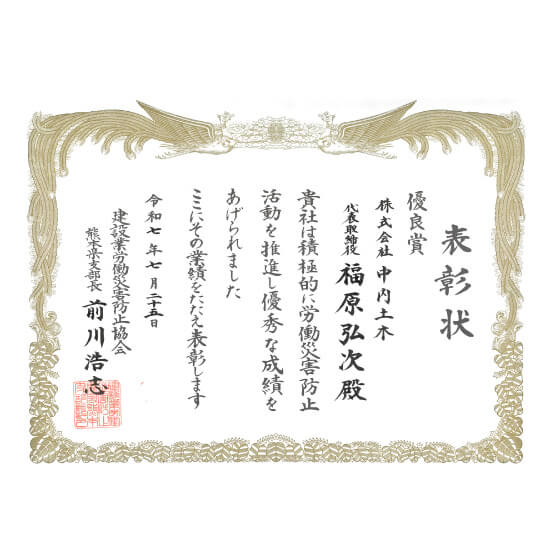 表彰状
優良賞
株式会社 中内土木
代表取締役 福原弘次殿
貴社は積極的に労働災害防止
活動を推進し優秀な成績を
あげられました
ここにその業績をたたえ表彰します
令和七年七月二十五日
建設業労働災害防止協会
熊本県支部長 前川浩志